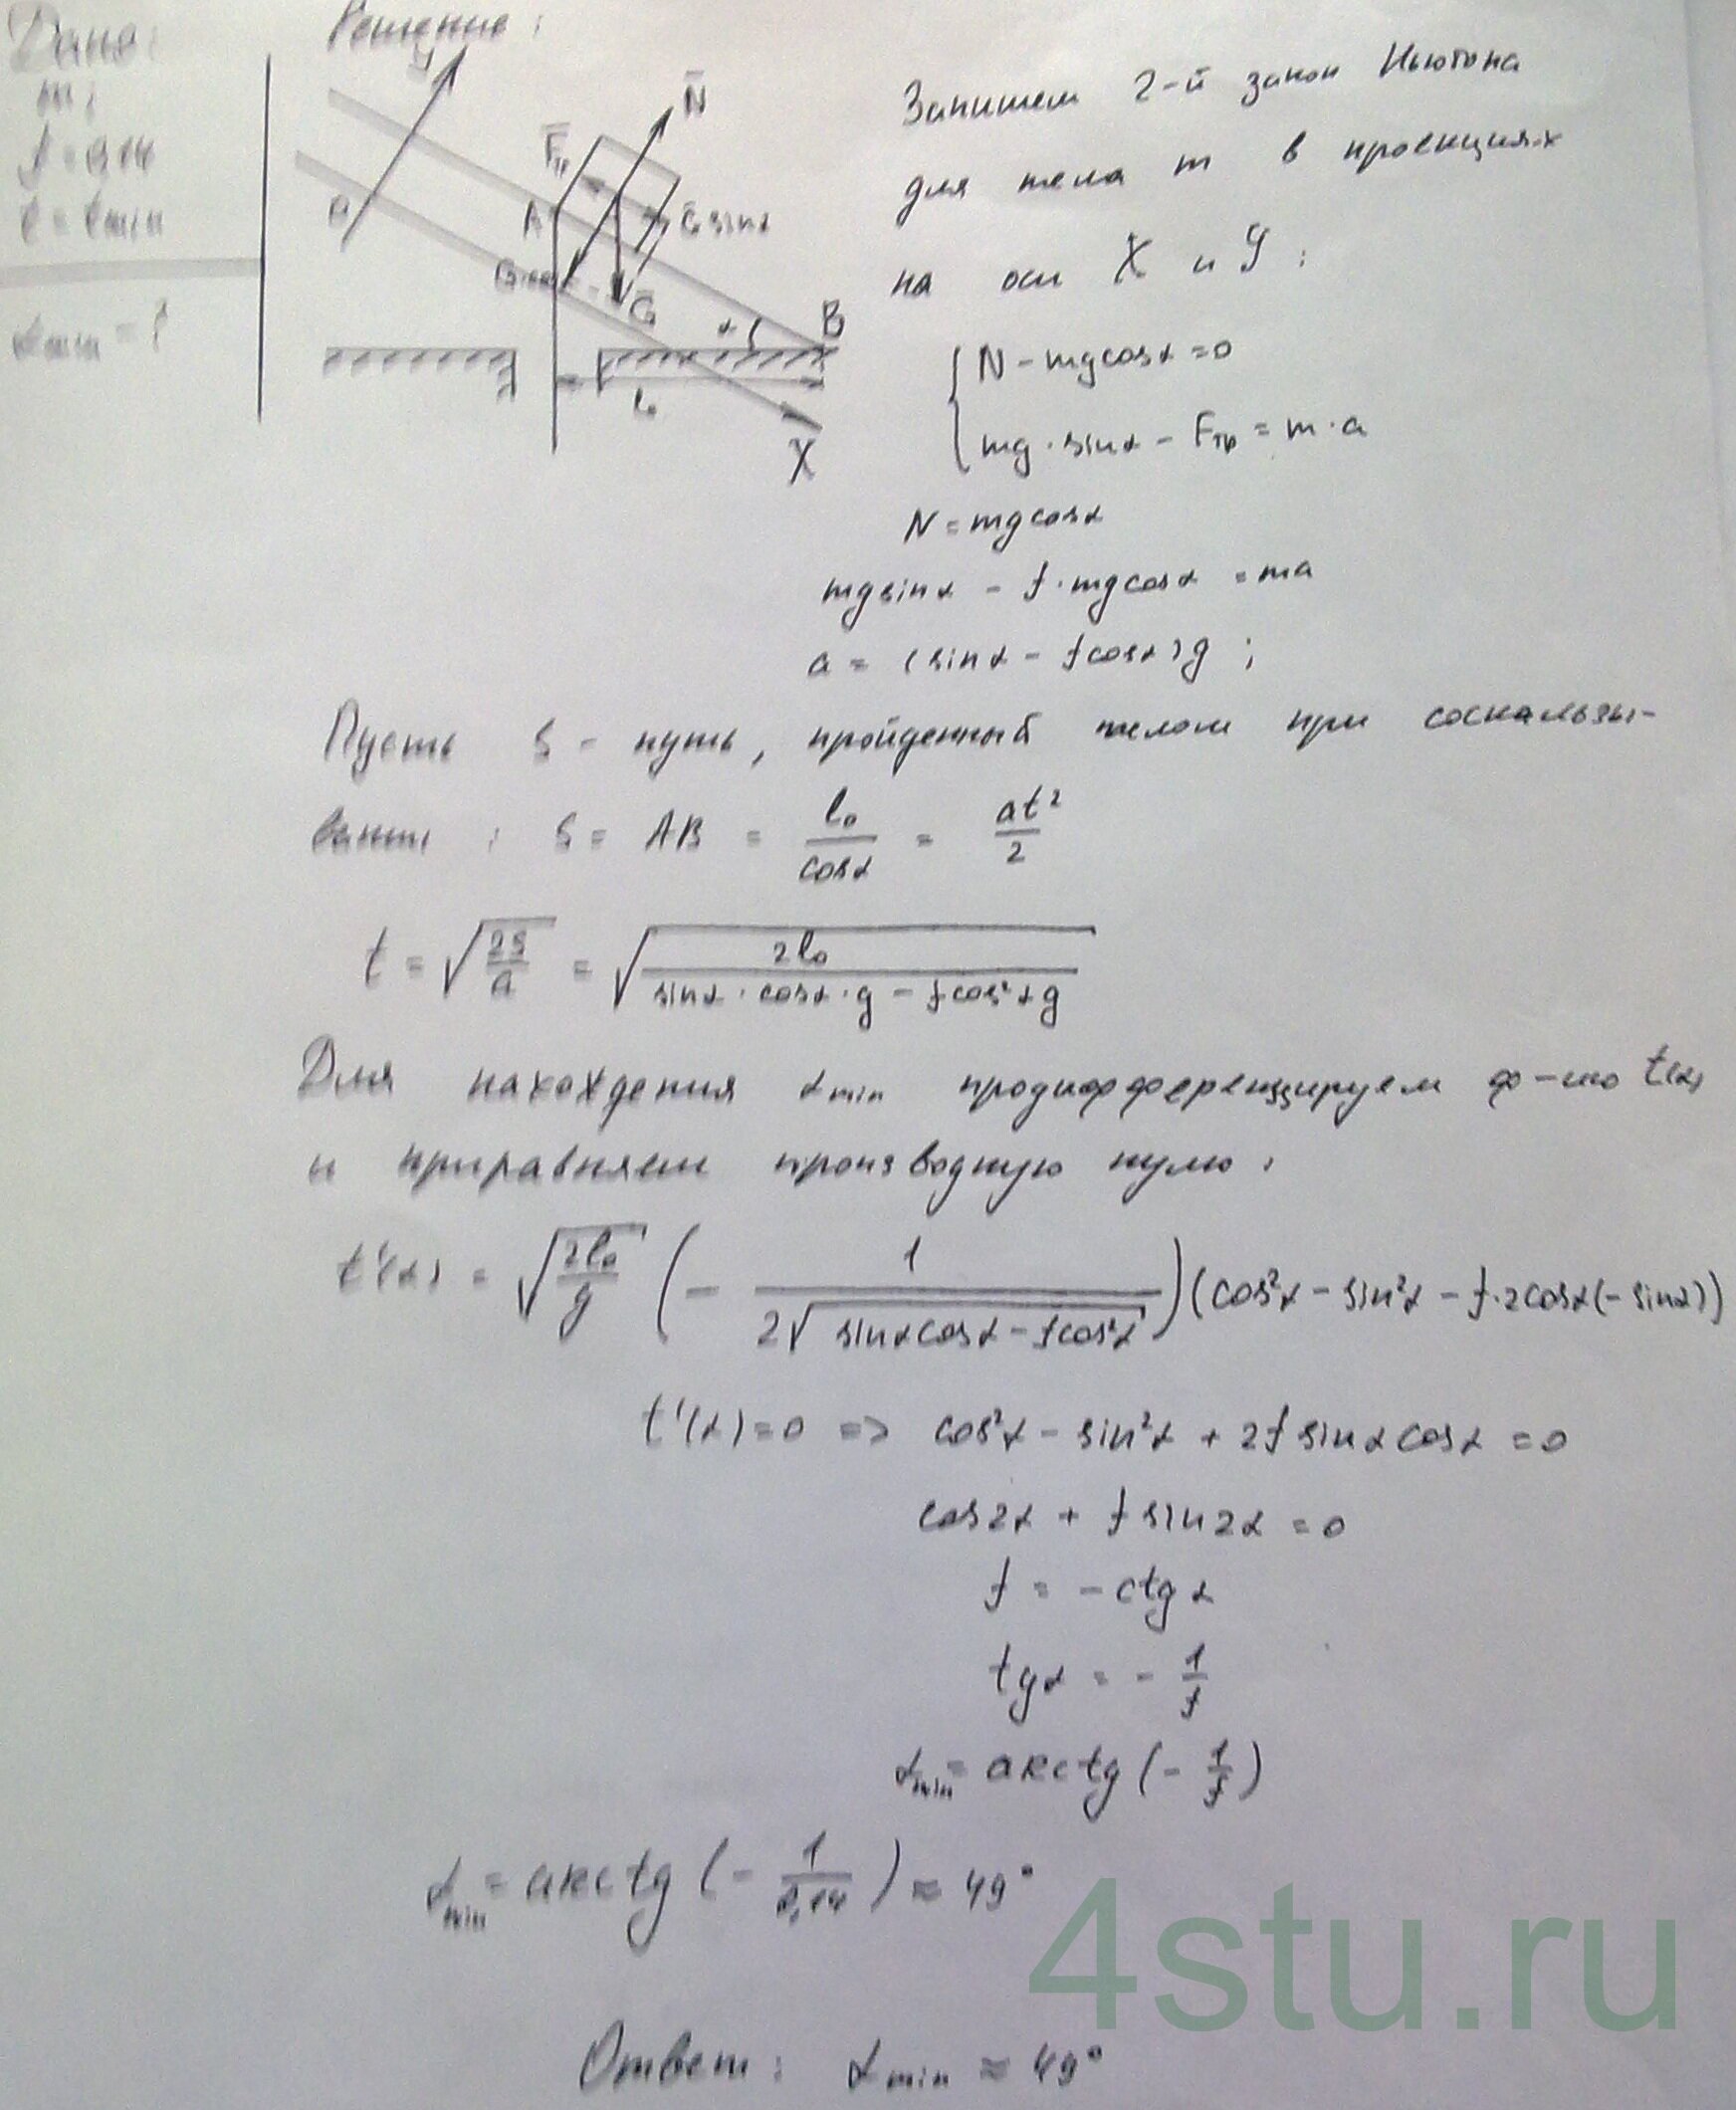 Дано:
m;
f = 0,14
t = tmin
αmin = ?
Решение:
y
N̄
F̄тр
A
Ḡ sinα
Ḡ
α
B
l₀
X
Запишем 2-й закон Ньютона
для тела m в проекциях
на оси X и Y:
N - mgcosα = 0
mg · sinα - Fтр = m · a
N = mgcosα
mgsinα - f · mgcosα = ma
a = (sinα - fcosα)g ;
Пусть S - путь, пройденный телом при соскальзы-
вании : S = AB = l₀/cosα = at²/2
t = √(2S/a) = √(2l₀/(sinα · cosα · g - fcos²αg))
Для нахождения αmin продифференцируем ф-цию t(α)
и приравняем производную нулю:
t'(α) = √(2l₀/g) (- 1/(2√(sinαcosα - fcos²α))) (cos²α - sin²α - f·2cosα(- sinα))
t'(α) = 0 => cos²α - sin²α + 2f sinα cosα = 0
cos2α + f sin2α = 0
f = - ctgα
tgα = - 1/f
αmin = arctg (- 1/f)
αmin = arctg (- 1/0,14) ≈ 49°
Ответ: αmin ≈ 49°
4stu.ru